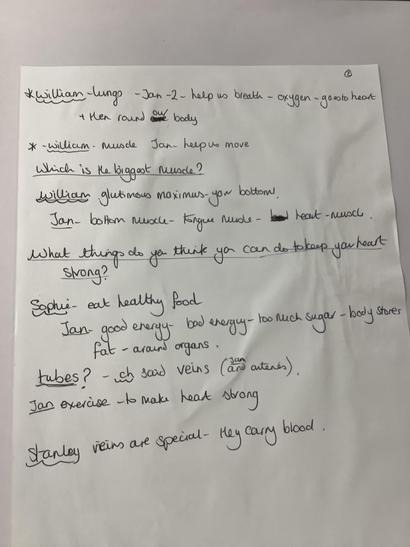 ②
* William - lungs - Jan - 2 - help us breath - oxygen - goes to heart
+ then round our body
* - william - muscle Jan - help us move
Which is the biggest muscle?
William glutimous maximus - your bottom.
Jan - bottom muscle - tongue muscle - heart - muscle.
What things do you think you can do to keep your heart
strong?
Sophie - eat healthy food
Jan - good energy - bad energy - too much sugar - body stores
fat - around organs.
tubes? - ch said veins (Jan and arteries).
Jan exercise - to make heart strong
Stanley veins are special - they carry blood.